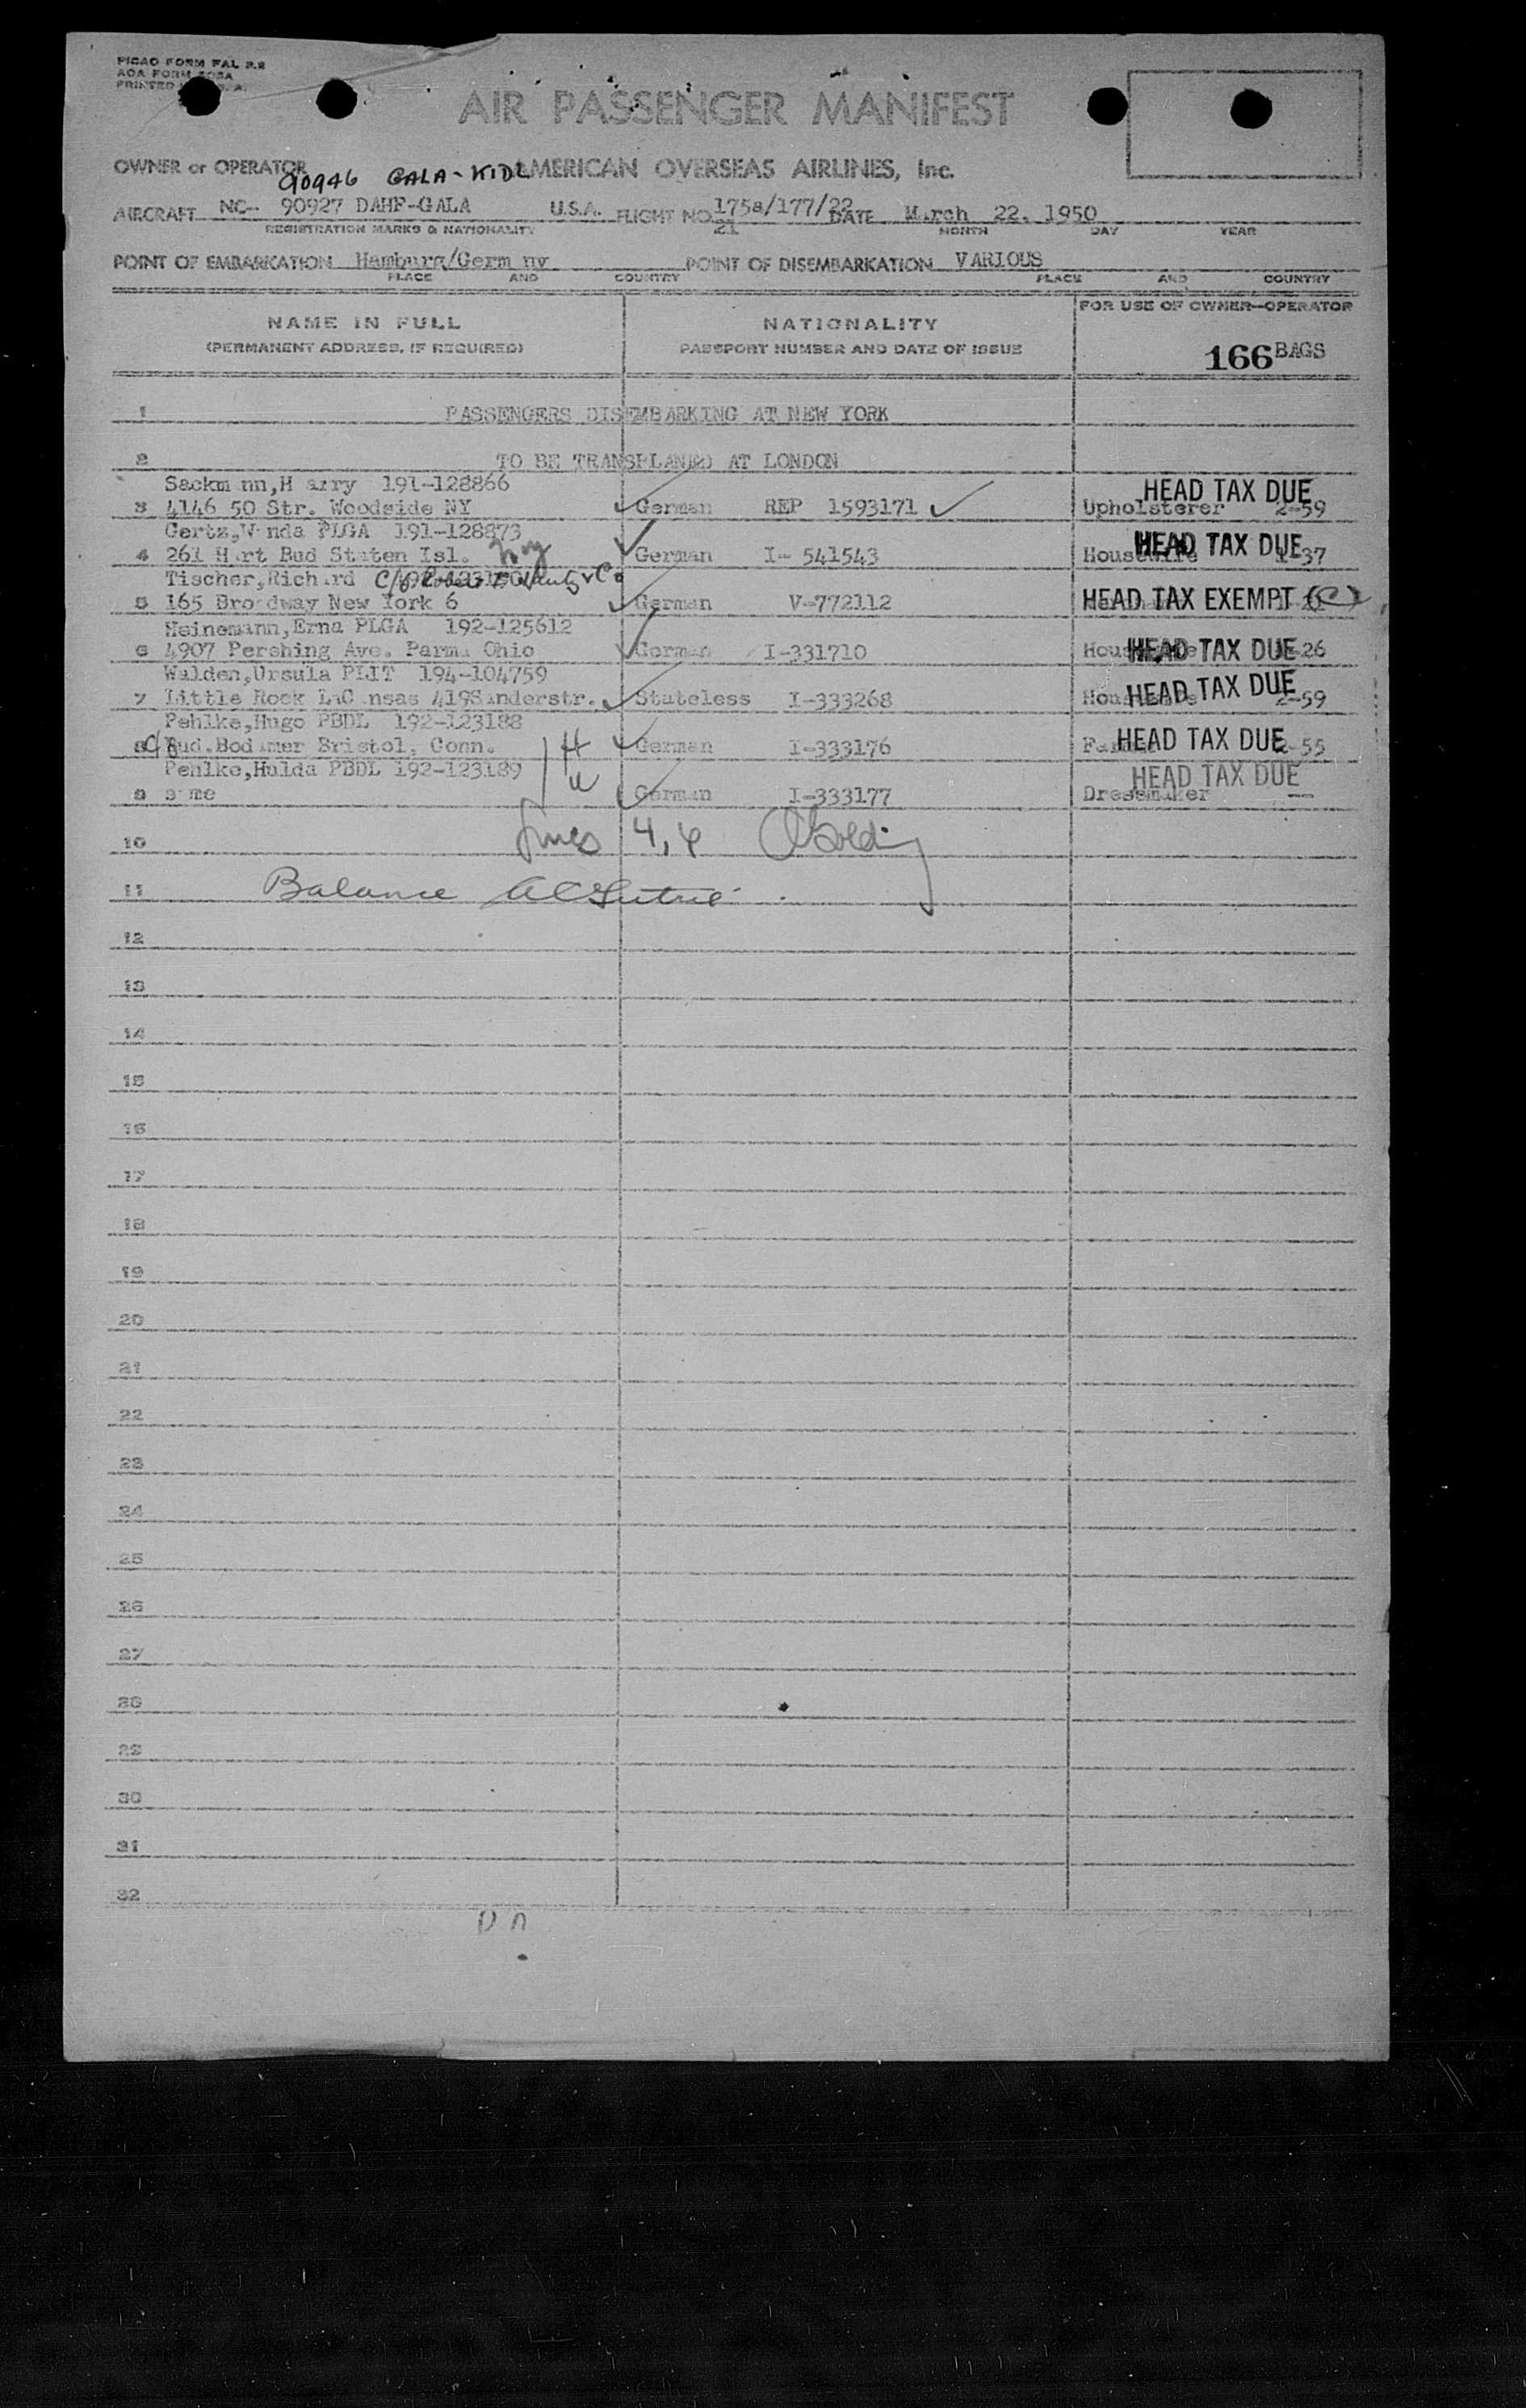 PICAO FORM FAL 2.2
AOA FORM
PRINTED
AIR PASSENGER MANIFEST
OWNER or OPERATOR AMERICAN OVERSEAS AIRLINES, Inc.
90946 GALA-KIDL
AIRCRAFT NC- 90927 DAHF-GALA U.S.A. FLIGHT NO. 175a/177/22 DATE March 22, 1950
REGISTRATION MARKS & NATIONALITY 21 MONTH DAY YEAR
POINT OF EMBARKATION Hamburg/Germ ny POINT OF DISEMBARKATION VARIOUS
PLACE AND COUNTRY PLACE AND COUNTRY
NAME IN FULL NATIONALITY FOR USE OF OWNER-OPERATOR
(PERMANENT ADDRESS, IF REQUIRED) PASSPORT NUMBER AND DATE OF ISSUE 166 BAGS
1 PASSENGERS DISEMBARKING AT NEW YORK
2 TO BE TRANSPLANED AT LONDON
Sackm nn,H arry 191-128866 HEAD TAX DUE
3 4146 50 Str. Woodside NY German REP 1593171 Upholsterer 2-59
Gertz,W nda PLGA 191-128873
4 261 H rt Bud Staten Isl. N.Y German I- 541543 Housewife HEAD TAX DUE 1-37
Tischer,Richard C/o
5 165 Broadway New York 6 German V-772112 HEAD TAX EXEMPT (C)
Heinemann,Erna PLGA 192-125612
6 4907 Pershing Ave. Parma Ohio German I-331710 HEAD TAX DUE 26
Walden,Ursula PLIT 194-104759
7 Little Rock 419Sanderstr. Stateless I-333268 HEAD TAX DUE 2-59
Pehlke,Hugo PBDL 192-123188
8 c/o Rud.Bodamer Bristol, Conn. H German I-333176 HEAD TAX DUE 2-55
Pehlke,Hulda PBDL 192-123189 W HEAD TAX DUE
9 s me German I-333177 Dressmaker --
10 Lines 4, 6
11 Balance
12
13
14
15
16
17
18
19
20
21
22
23
24
25
26
27
28
29
30
31
32